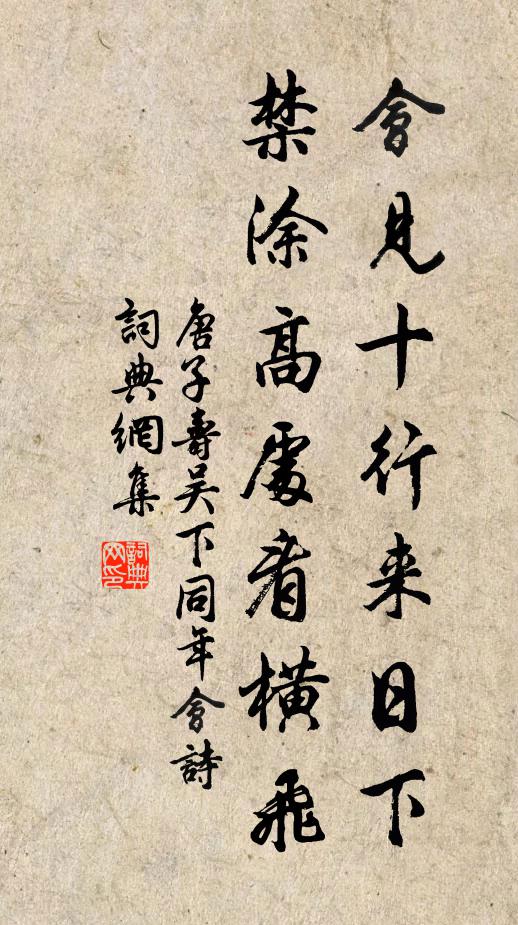 會見十行来日下
禁涂高處看橫飛
唐子壽吴下同年會詩
詞典網集
詞典网印